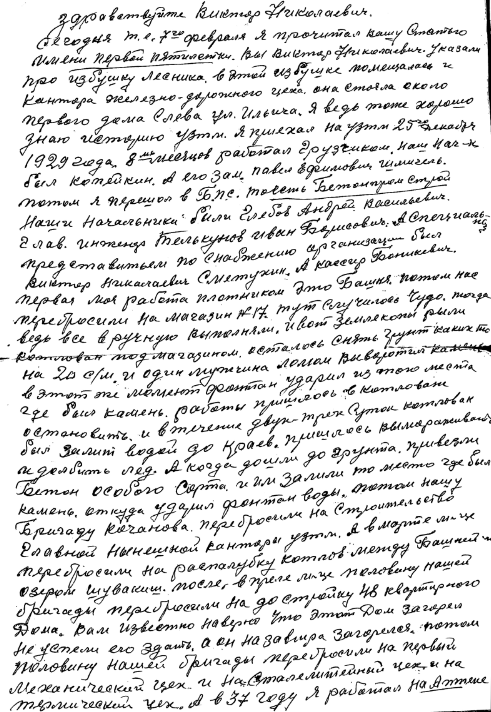 Здравствуйте Виктор Николаевич.
Сегодня т.е. 7го февраля я прочитал вашу Статью
имени первой пятилетки. Вы Виктор Николаевич. указали
про избушку лесника. в этой избушке помещалась и
кантора железно-дорожного цеха. она стояла около
первого дома Слева ул. Ильича. Я ведь тоже хорошо
знаю историю узтм. Я приехал на узтм 25го декабря
1929 года. 8мь месяцов работал Грузчиком. наш Нач-к
был копейкин. А его зам. павел Ефимович Шмигель.
потом я перешол в Б.П.С. тоесть Бетонпром Строй
Наши Начальники были Глебов Андрей Васильевич.
Глав. инженер Телькунов иван Борисович. А Специаль-
представитьем по снабжению организации был
Виктор Николаевич Сметухин. А кассир Боникевич.
первая моя работа плотником это Башня. потом нас
перебросили на магазин №17 тут случилось Чудо. тогда
ведь все в ручную выполняли. и вот Землекопы рыли
котлован под магазином. осталось снять грунт каких то
на 20 с/м. и один мужчина ломом выворотил камень
в этот же момент фонтан ударил из того места
где был камень. работы пришлось в котловане
остановить. и в течение двух-трех суток котлован
был залит водой до краев. пришлось вымораживать
и долбить лед. А когда дошли до грунта. привезли
Бетон особого Сорта. и им залили то место где был
камень. откуда ударил фонтан воды. потом нашу
Бригаду Кочанова. перебросили на Строительство
Главной Нынешной канторы узтм. А в марте м-це
перебросили на распалубку котлов между Башней и
озером Шувакиш. после, в преле м-це половину нашей
бригады перебросили на достройку 48 квартирного
Дома. Вам известно наверно что этот Дом загорел
Не успели его здать. а он назавтра загорелся. потом
половину нашей бригады перебросили на первый
механический цех. и на Сталелитейный цех. и на
термический цех. А в 37 году я работал на